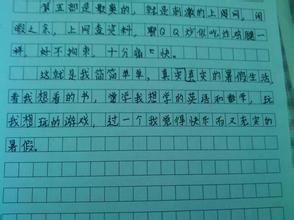 第五部是歇奥的，就是刺激的上网间，闲
暇之余，上网查资料，聊QQ炒饭吃炸鸡腿一
样，好不拘束，十分痛快。
这就是我简简单单，真实真实的暑假生活，
看我想看的书，学我想学的英语和数学，玩
我想玩的游戏，过一个我觉得快乐而又充实的
暑假。